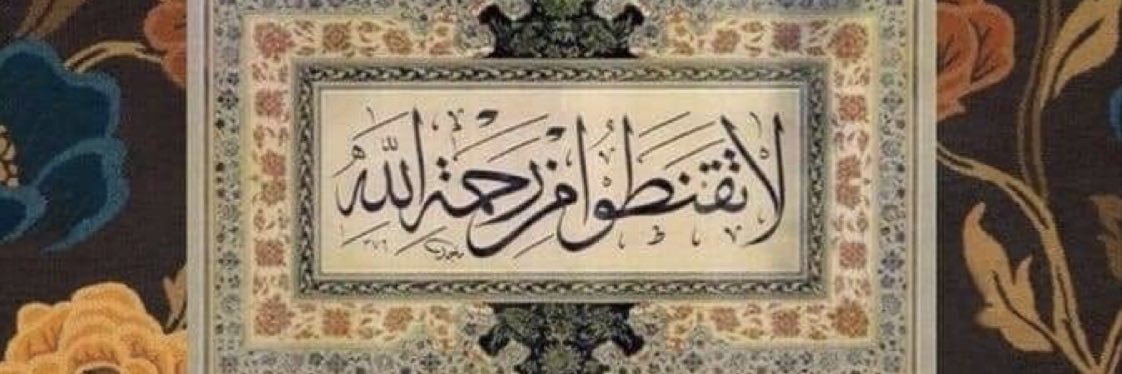 لَا تَقْنَطُوا مِنْ رَحْمَةِ اللّٰهِ